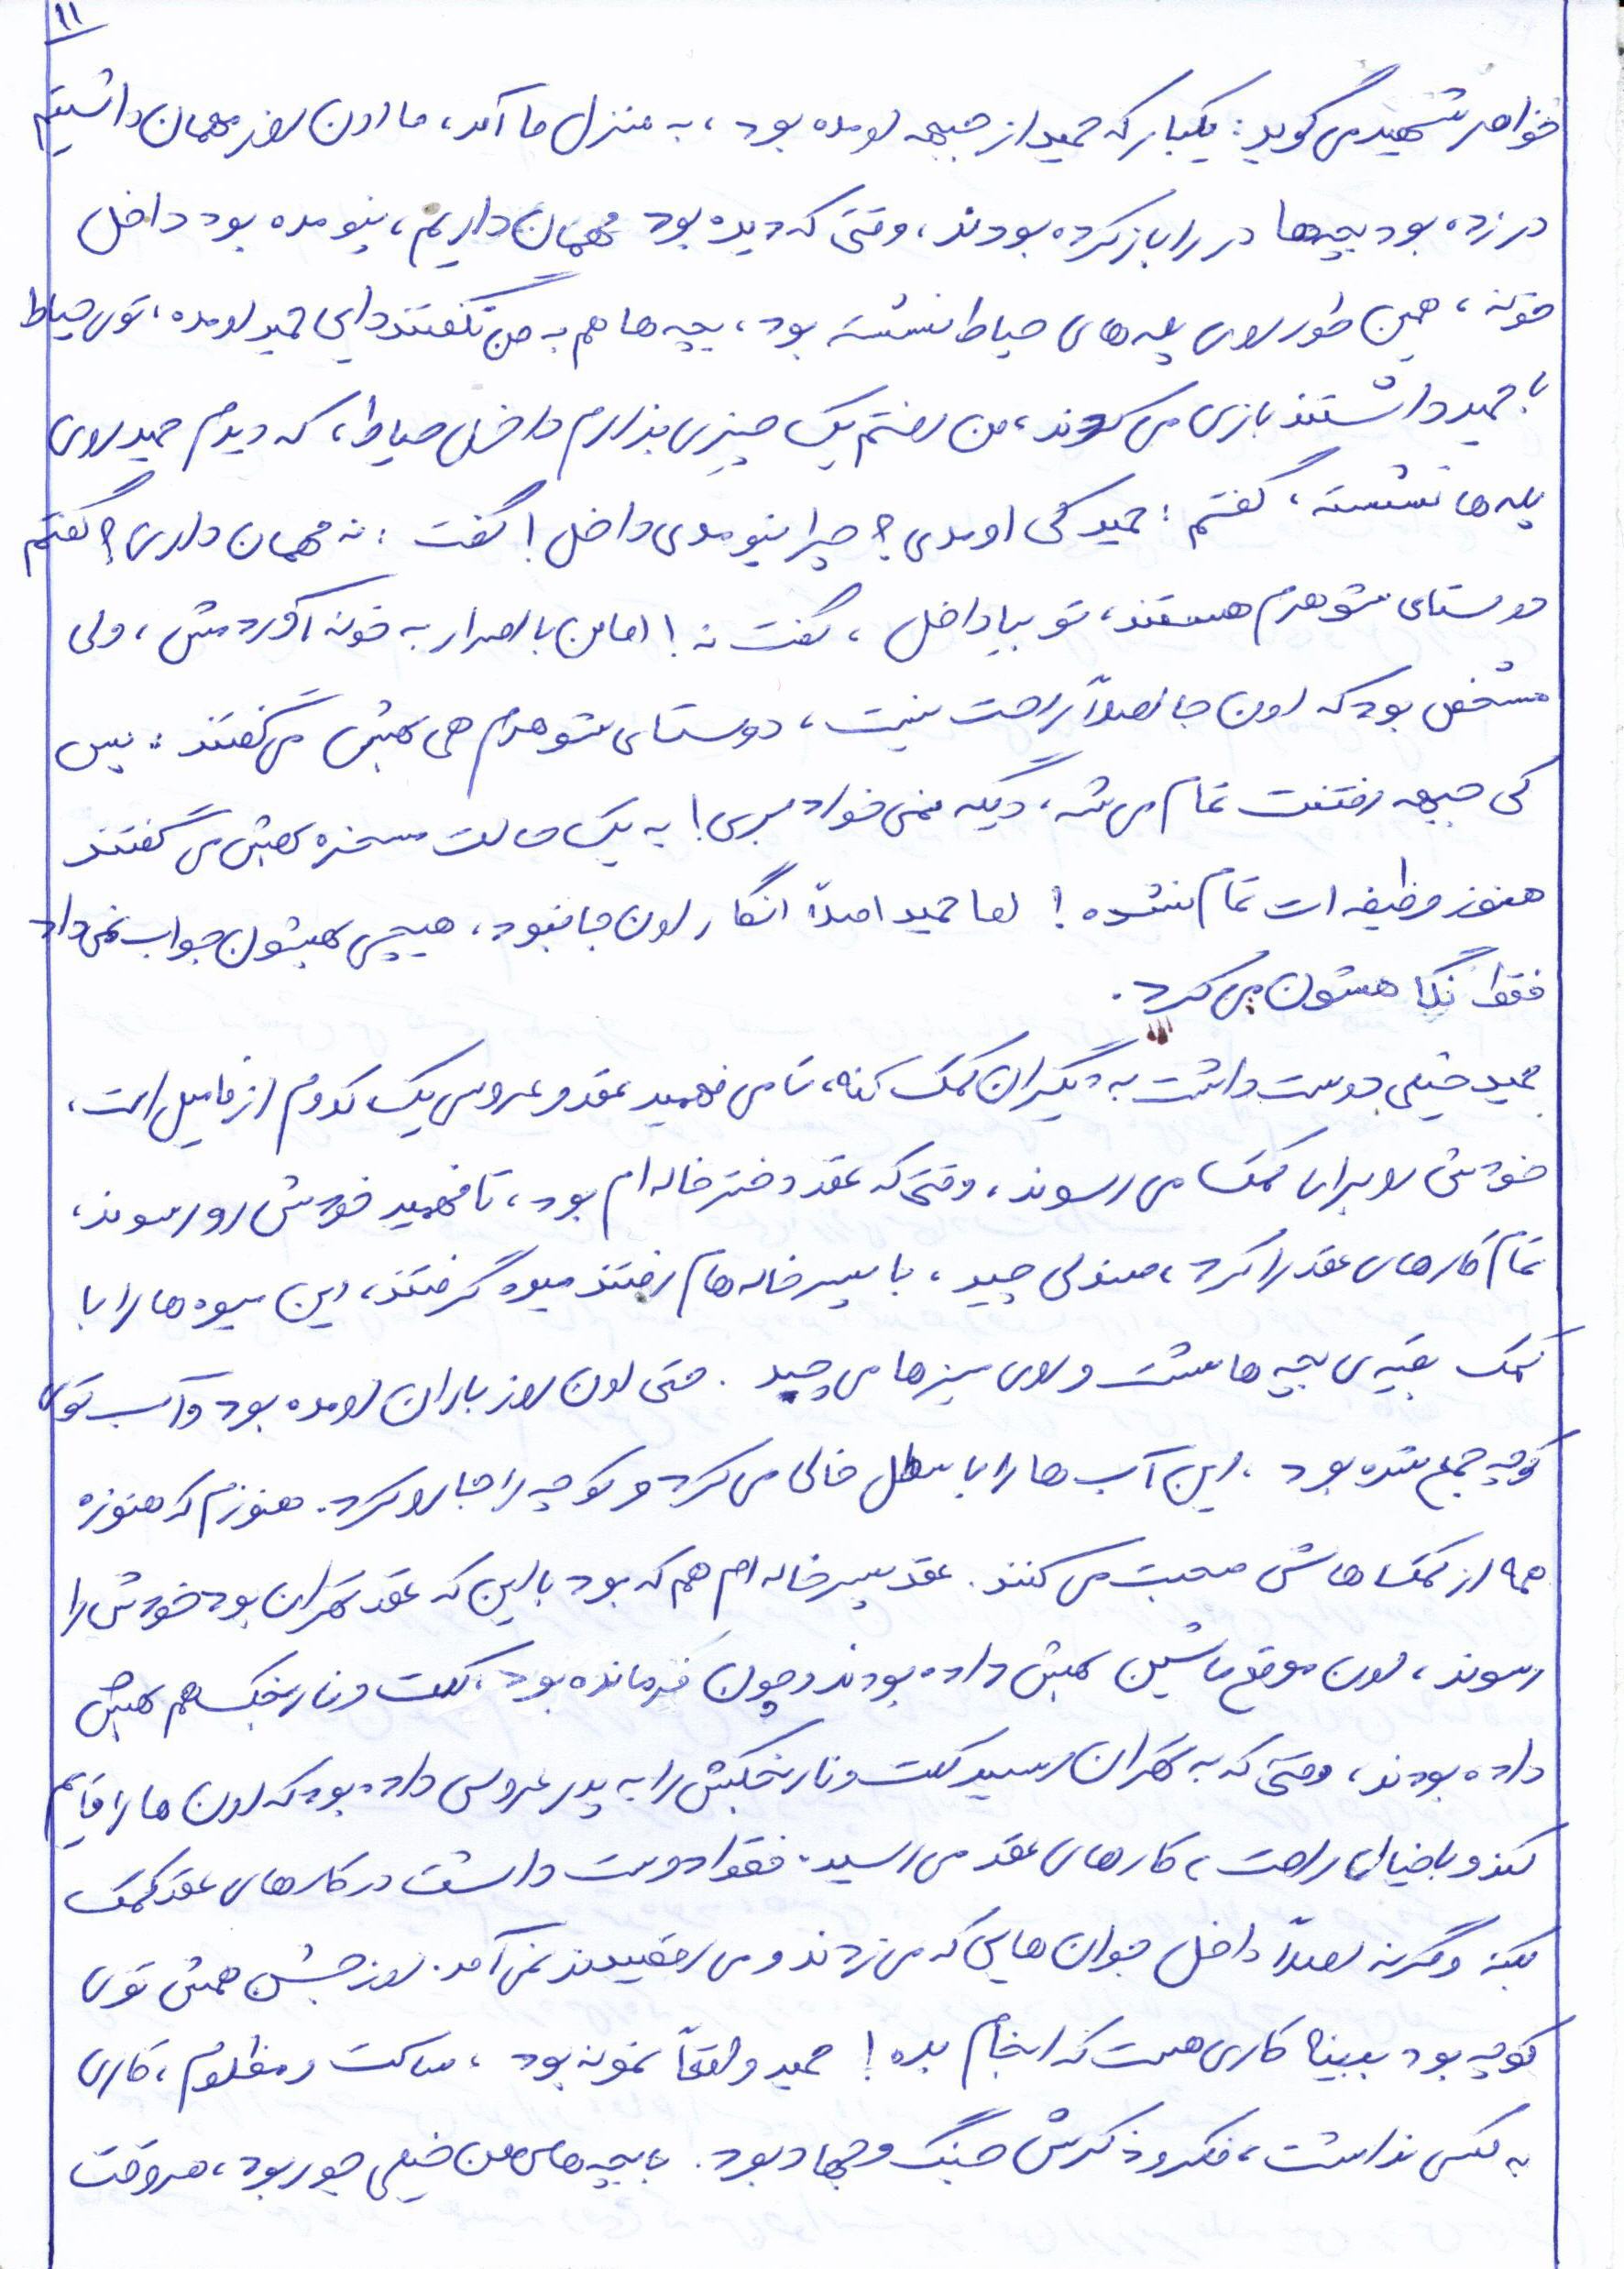 ۱۱
خواهر شهید می گوید: یکبار که حمید از جبهه اومده بود، به منزل ما آمد، ما اون روز مهمان داشتیم
در زده بود بچه‌ها در را باز کرده بودند، وقتی که دیده بود مهمان داریم، نیومده بود داخل
خونه، همین طور روی پله های حیاط نشسته بود، بچه ها هم به من نگفتند دایی حمید اومده، توی حیاط
با حمید داشتند بازی می کردند، من رفتم یک چیزی بذارم داخل حیاط، که دیدم حمید روی
پله ها نشسته، گفتم: حمید کی اومدی؟ چرا نیومدی داخل! گفت: نه مهمان داری؟ گفتم
دوستای شوهرم هستند، تو بیا داخل، گفت نه! اما من با اصرار به خونه آوردمش، ولی
مشخص بود که اون جا اصلاً راحت نیست، دوستای شوهرم هی بهش می گفتند: پس
کی جبهه رفتنت تمام می شه، دیگه نمی خواد بری! به یک حالت مسخره بهش می گفتند
هنوز وظیفه ات تمام نشده! اما حمید اصلاً انگار اون جا نبود، هیچی بهشون جواب نمی داد
فقط نگاهشون می کرد.
حمید خیلی دوست داشت به دیگران کمک کنه، تا می فهمید عقد و عروسی یک کدوم از فامیل است،
خودش رو برای کمک می رسوند، وقتی که عقد دختر خاله ام بود، تا فهمید خودش رو رسوند،
تمام کارهای عقد را کرد، صندلی چید، با پسر خاله هام رفتند میوه گرفتند، این میوه ها را با
کمک بقیه ی بچه ها شست و روی میزها می چید. حتی اون روز باران اومده بود و آب توی
کوچه جمع شده بود، این آب ها را با سطل خالی می کرد و کوچه را جارو کرد. هنوزم که هنوزه
همه از کمک هاش صحبت می کنند. عقد پسر خاله ام هم که بود با این که عقد تهران بود خودش را
رسوند، اون موقع ماشین بهش داده بودند و چون فرمانده بود، کلت و نارنجک هم بهش
داده بودند، وقتی که به تهران رسید کلت و نارنجکش را به پدر عروس داده بود که اون ها را قایم
کند و با خیال راحت به کارهای عقد می رسید. فقط دوست داشت در کارهای عقد کمک
بکنه وگرنه اصلاً داخل جوان هایی که می زدند و می رقصیدند نمی آمد. روز جشن همش توی
کوچه بود ببینه کاری هست که انجام بده! حمید واقعاً نمونه بود، ساکت و مظلوم، کاری
به کسی نداشت، فکر و ذکرش جنگ و جهاد بود. با بچه های من خیلی جور بود، هر وقت